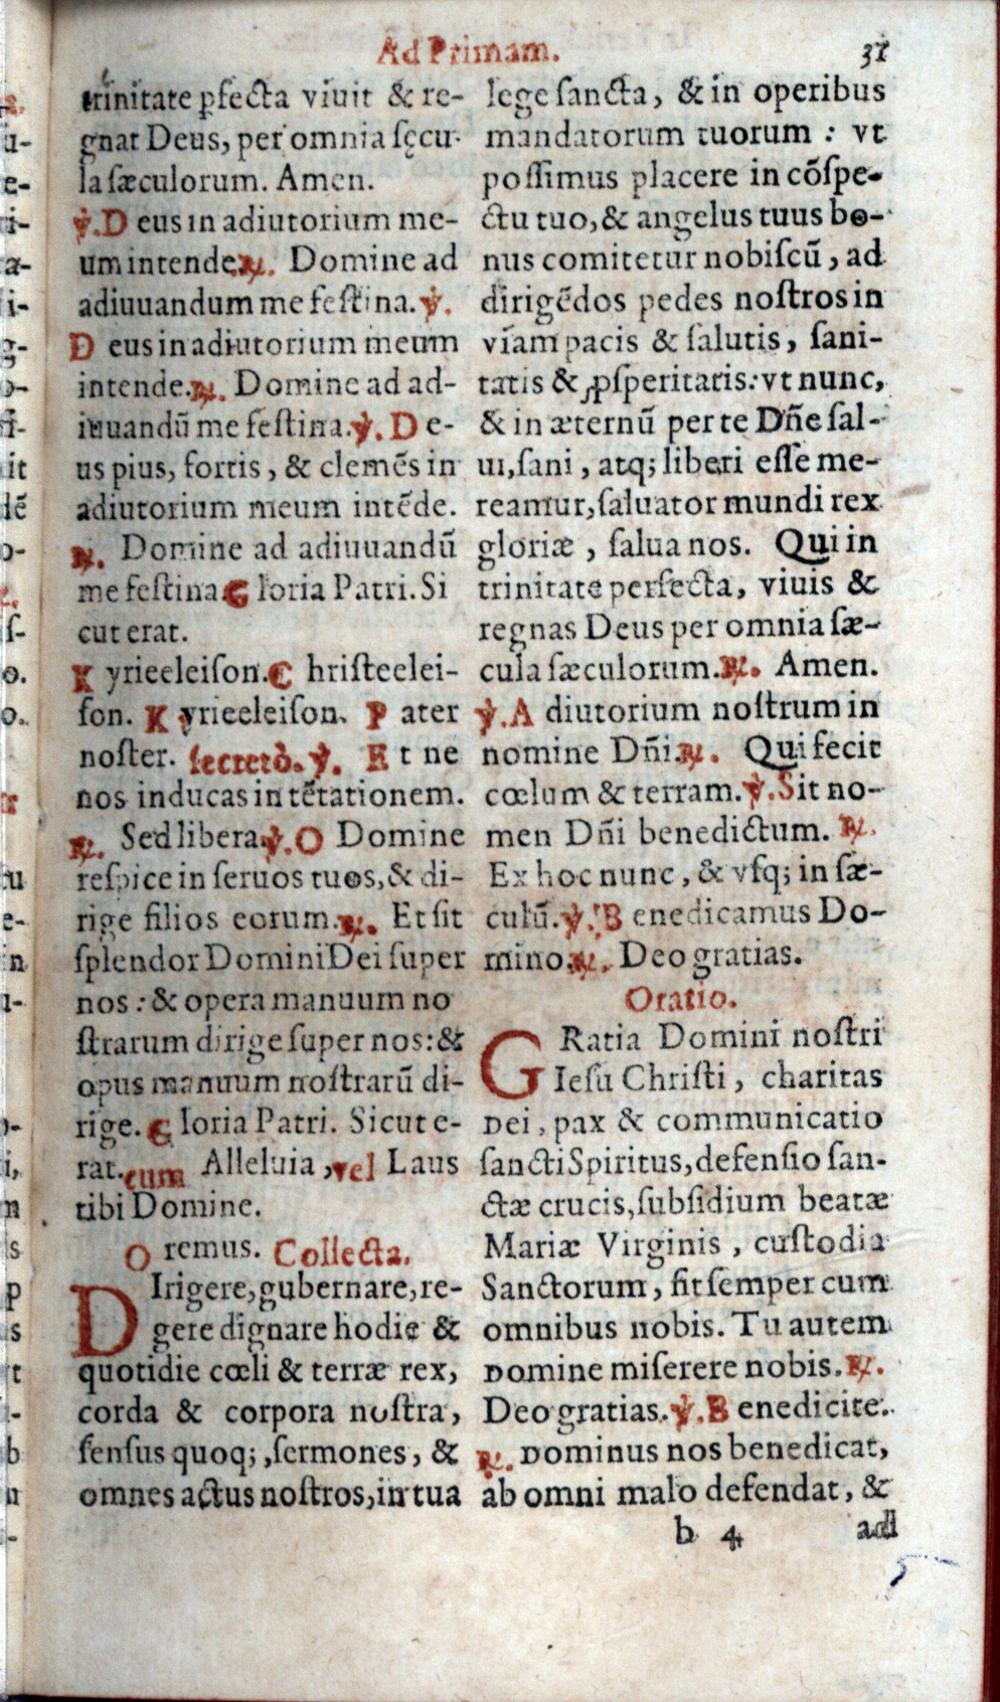 Ad Primam. 31
trinitate ꝑfecta viuit & re-
gnat Deus, per omnia sęcu-
la sæculorum. Amen.
℣. Deus in adiutorium me-
um intende. ℟. Domine ad
adiuuandum me festina. ℣.
Deus in adiutorium meum
intende. ℟. Domine ad ad-
iuuandū me festina. ℣. De-
us pius, fortis, & clemēs in
adiutorium meum intēde.
℟. Domine ad adiuuandū
me festina. Gloria Patri. Si
cut erat.
Kyrieeleison. Christeelei-
son. Kyrieeleison. Pater
noster. secretò. ℣. Et ne
nos inducas in tētationem.
℟. Sed libera. ℣. O Domine
respice in seruos tuos, & di-
rige filios eorum. ℟. Et sit
splendor Domini Dei super
nos: & opera manuum no
strarum dirige super nos: &
opus manuum nostrarū di-
rige. Gloria Patri. Sicut e-
rat. cum Alleluia, vel Laus
tibi Domine.
Oremus. Collecta.
DIrigere, gubernare, re-
gere dignare hodie &
quotidie cœli & terræ rex,
corda & corpora nostra,
sensus quoq;, sermones, &
omnes actus nostros, in tua
lege sancta, & in operibus
mandatorum tuorum: vt
possimus placere in cōspe-
ctu tuo, & angelus tuus bo-
nus comitetur nobiscū, ad
dirigēdos pedes nostros in
viam pacis & salutis, sani-
tatis & ꝓsperitatis: vt nunc,
& in æternū per te Dñe sal-
ui, sani, atq; liberi esse me-
reamur, saluator mundi rex
gloriæ, salua nos. Qui in
trinitate perfecta, viuis &
regnas Deus per omnia sæ-
cula sæculorum. ℟. Amen.
℣. Adiutorium nostrum in
nomine Dñi. ℟. Qui fecit
cœlum & terram. ℣. Sit no-
men Dñi benedictum. ℟.
Ex hoc nunc, & vsq; in sæ-
culū. ℣. Benedicamus Do-
mino. ℟. Deo gratias.
Oratio.
GRatia Domini nostri
Iesu Christi, charitas
Dei, pax & communicatio
sancti Spiritus, defensio san-
ctæ crucis, subsidium beatæ
Mariæ Virginis, custodia
Sanctorum, sit semper cum
omnibus nobis. Tu autem
Domine miserere nobis. ℟.
Deo gratias. ℣. Benedicite.
℟. Dominus nos benedicat,
ab omni malo defendat, &
b 4 ad